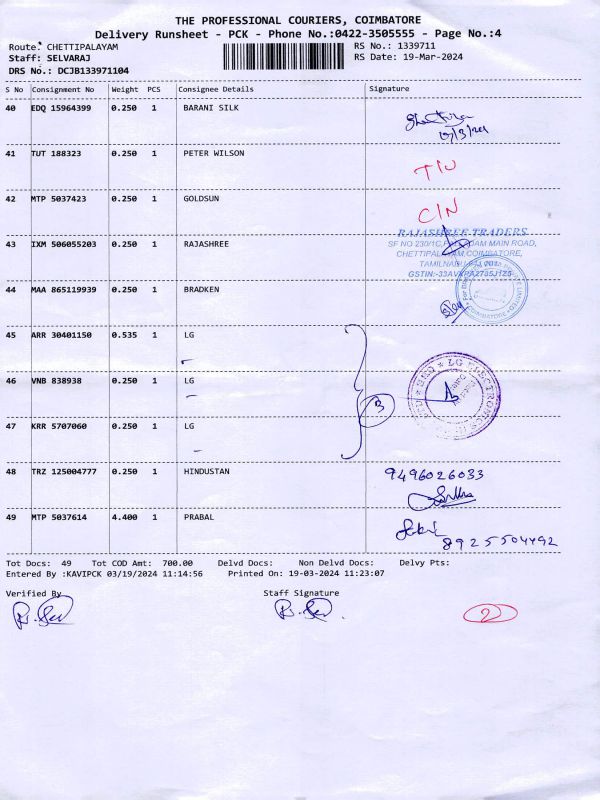 THE PROFESSIONAL COURIERS, COIMBATORE
Delivery Runsheet - PCK - Phone No.:0422-3505555 - Page No.:4
Route: CHETTIPALAYAM RS No.: 1339711
Staff: SELVARAJ RS Date: 19-Mar-2024
DRS No.: DCJB133971104
S No Consignment No Weight PCS Consignee Details Signature
40 EDQ 15964399 0.250 1 BARANI SILK
41 TUT 188323 0.250 1 PETER WILSON
42 MTP 5037423 0.250 1 GOLDSUN
C/N
RAJASHREE TRADERS
43 IXM 506055203 0.250 1 RAJASHREE
SF NO 230/1C, MAIN ROAD,
CHETTIPALAYAM, COIMBATORE,
TAMILNADU
44 MAA 865119939 0.250 1 BRADKEN
COIMBATORE
45 ARR 30401150 0.535 1 LG
LG ELECTRONICS
46 VNB 838938 0.250 1 LG
3
47 KRR 5707060 0.250 1 LG
48 TRZ 125004777 0.250 1 HINDUSTAN
9496026033
49 MTP 5037614 4.400 1 PRABAL
8925504492
Tot Docs: 49 Tot COD Amt: 700.00 Delvd Docs: Non Delvd Docs: Delvy Pts:
Entered By :KAVIPCK 03/19/2024 11:14:56 Printed On: 19-03-2024 11:23:07
Verified By Staff Signature
2